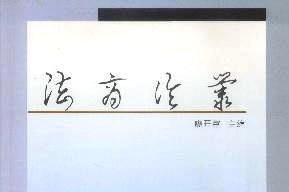 法商论叢
主编